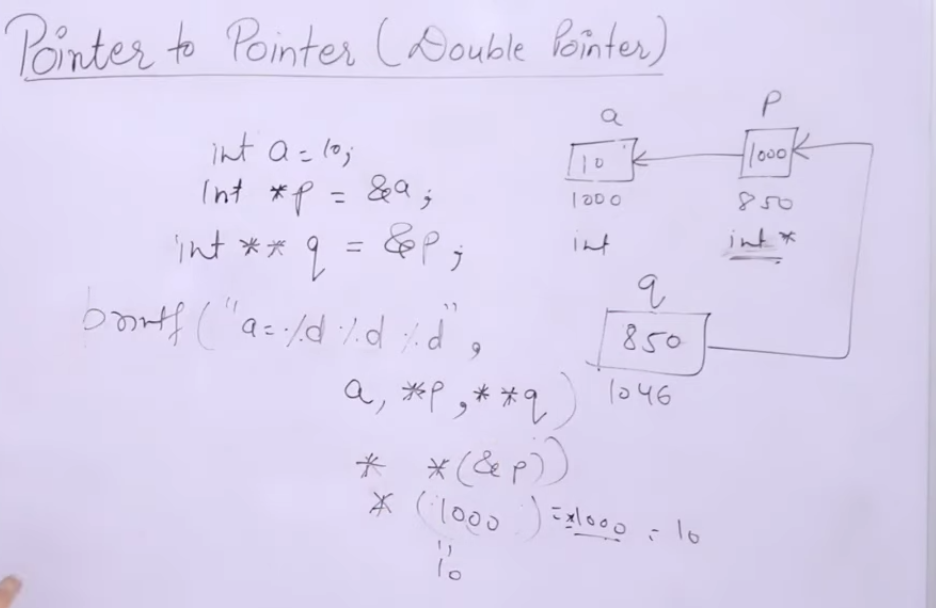 Pointer to Pointer (Double Pointer)
int a = 10;
Int *p = &a;
int ** q = &p;
printf("a=%d %d %d",
a, *p, **q)
* *(&p))
* (1000) = *1000 = 10
"
10
a
10
1000
int
P
1000
850
int *
q
850
1046